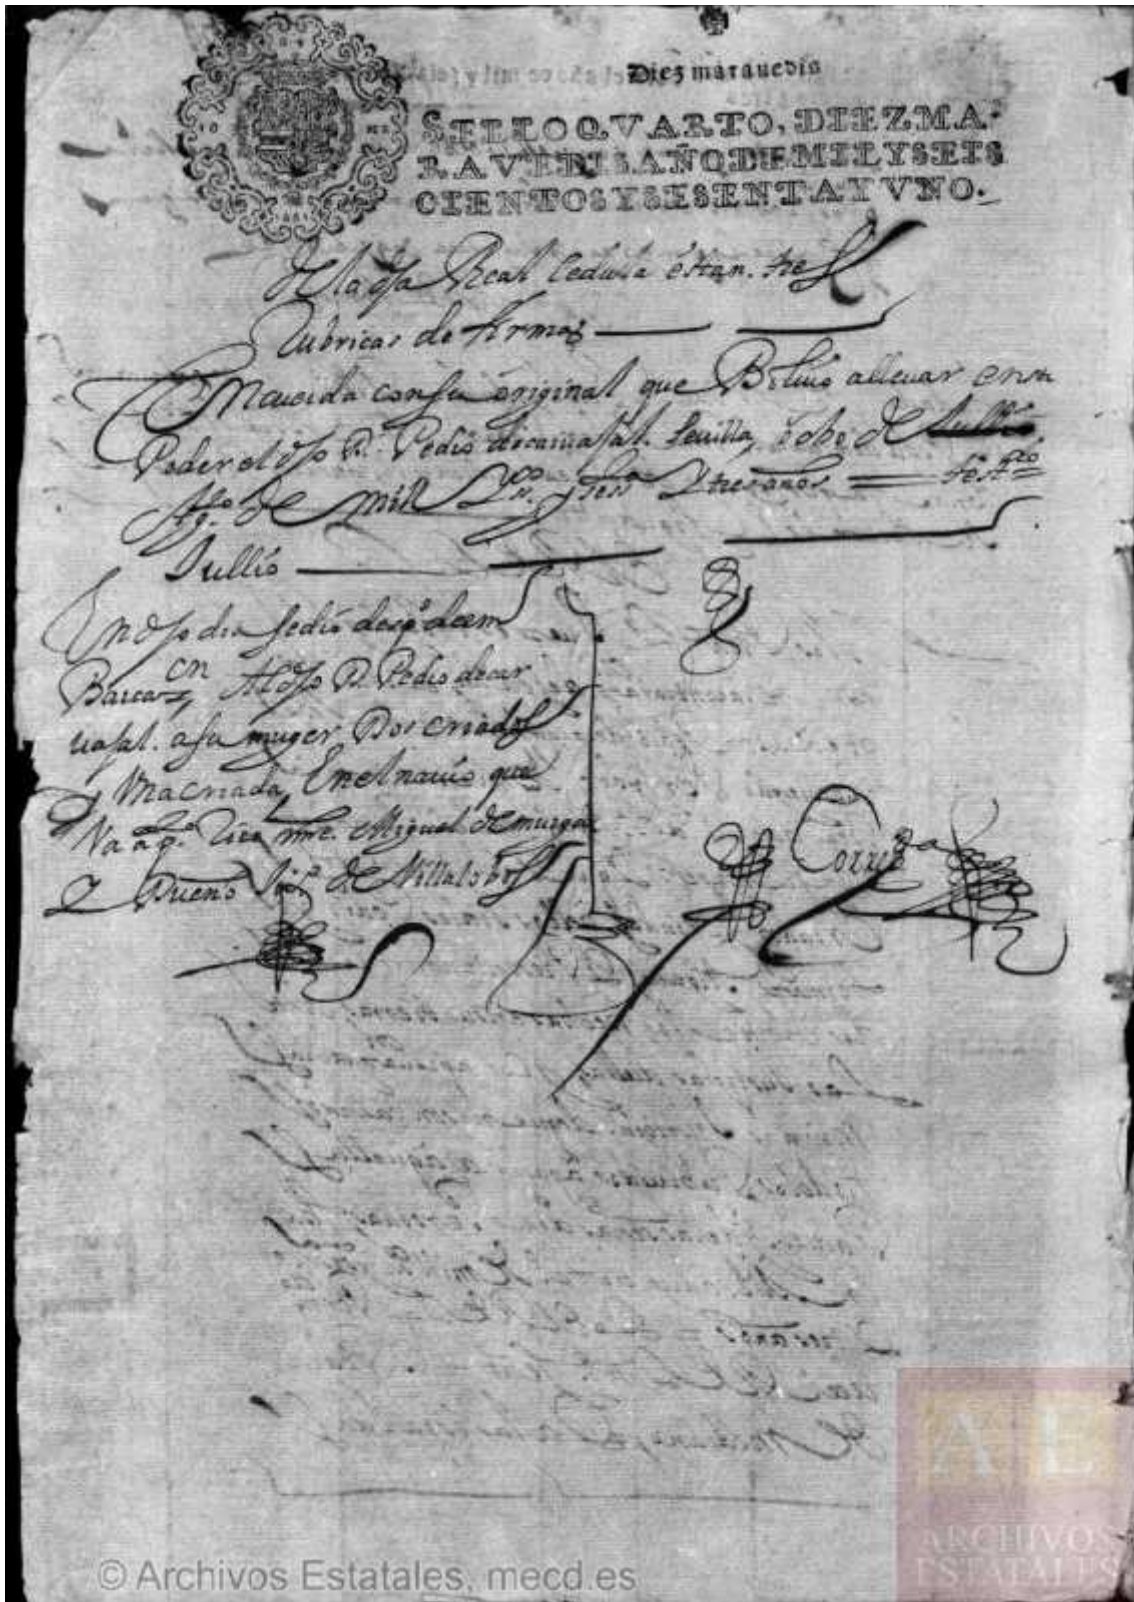 Diez marauedis
SELLO QVARTO, DIEZ MA-
RAVEDIS, AÑO DE MIL Y SEIS
CIENTOS Y SESENTA Y VNO.
de la dha Real Cedula estan. tres
Rubricas de firmas
Concuerda con su original que Boluio a lleuar en su
Poder el dho Dn. Pedro de caruajal. Seuilla, ocho de Jullio
Ago. de mill Ss.os y sesta y tres años = testdo
Jullio
En dho dia se dio despo. de em
Barcaon Al dho D. Pedro de car
uajal. a su muger Dos criados
y Vna criada, En el nauio que
Va a po. Rico mre. Miguel de murga
y Dueño de Villalobos
© Archivos Estatales, mecd.es
AE
ARCHIVOS
ESTATALES